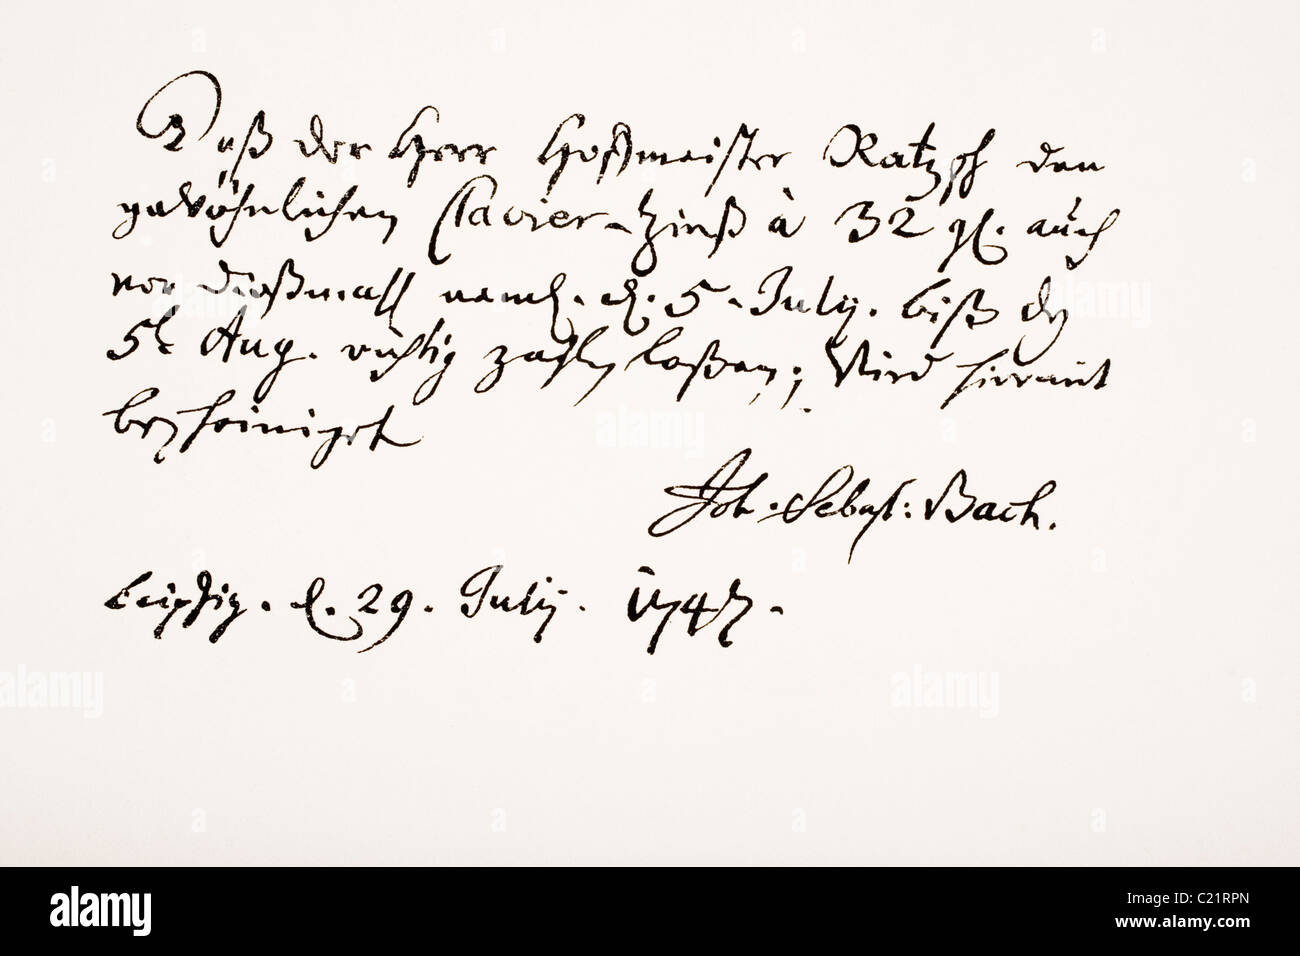 Daß der Herr Hoffmeister Ratzsch den
gewöhnlichen Clavier-Zinß à 32 gl. auch
vor dießmahl neml. d. 5. July. biß den
5t Aug. richtig zahlen laßen; Wird hiermit
bescheiniget
Joh. Sebast: Bach.
Leipzig. d. 29. July. 1747.
alamy
alamy
alamy
alamy
alamy
alamy
Image ID: C21RPN
www.alamy.com